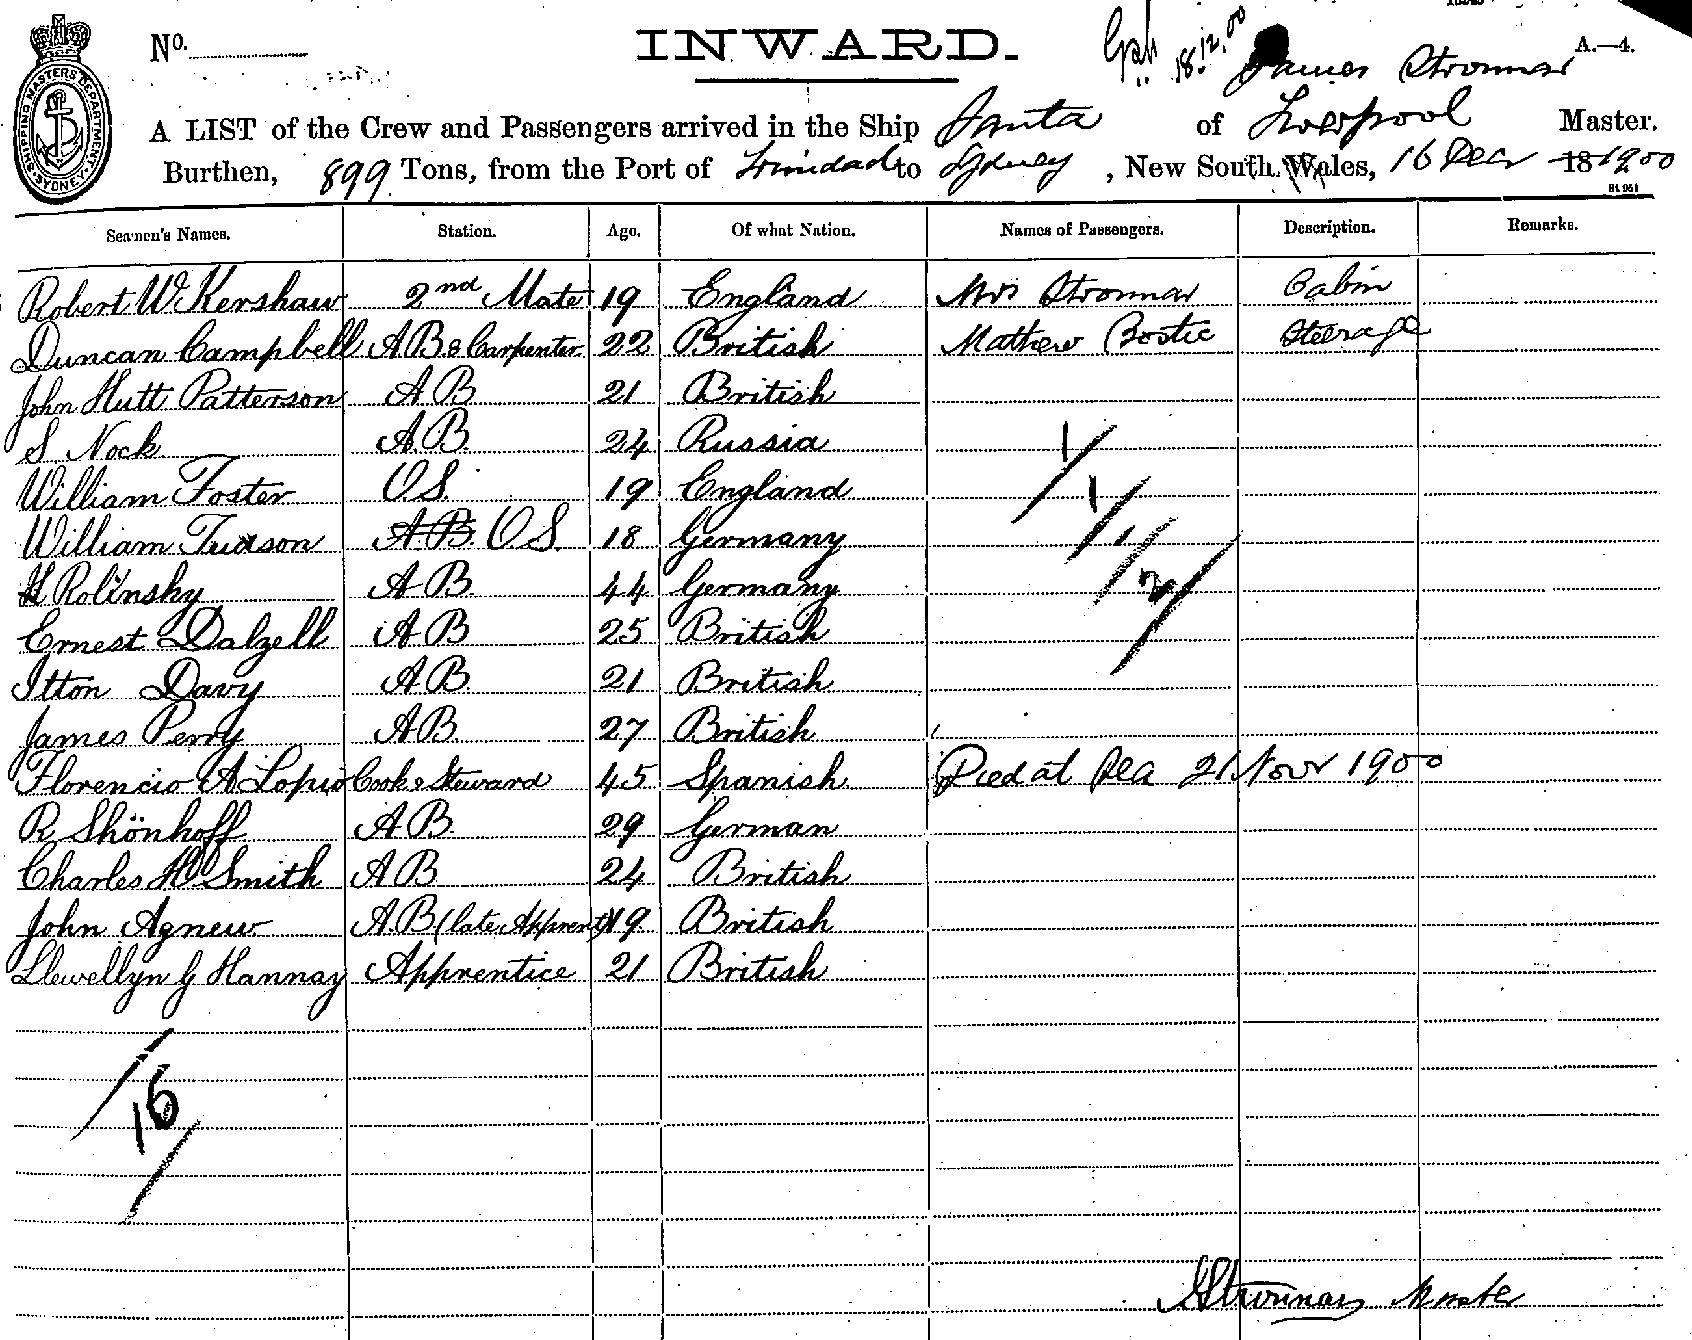 No. INWARD. 18.12.00 A.—4.
James Stronnar
A LIST of the Crew and Passengers arrived in the Ship Santa of Liverpool Master.
Burthen, 899 Tons, from the Port of Trinidad to Sydney, New South Wales, 16 Decr 18 1900
SHIPPING MASTERS DEPARTMENT SYDNEY
Seamen's Names. Station. Age. Of what Nation. Names of Passengers. Description. Remarks.
Robert W Kershaw 2nd Mate 19 England Mrs Stronnar Cabin
Duncan Campbell AB & Carpenter 22 British Mathew Bostic Steerage
John Hutt Patterson AB 21 British
S Nock AB 24 Russia
William Foster OS 19 England
William Judson AB OS 18 Germany
H Rolinsky AB 44 Germany
Ernest Dalzell AB 25 British
Itton Davy AB 21 British
James Perry AB 27 British
Florencio A Lopio Cook & Steward 45 Spanish Died at Sea 21 Novr 1900
R Shönhoff AB 29 German
Charles H Smith AB 24 British
John Agnew AB (late Apprent) 19 British
Llewellyn G Hannay Apprentice 21 British
/16/
Stronnar Master